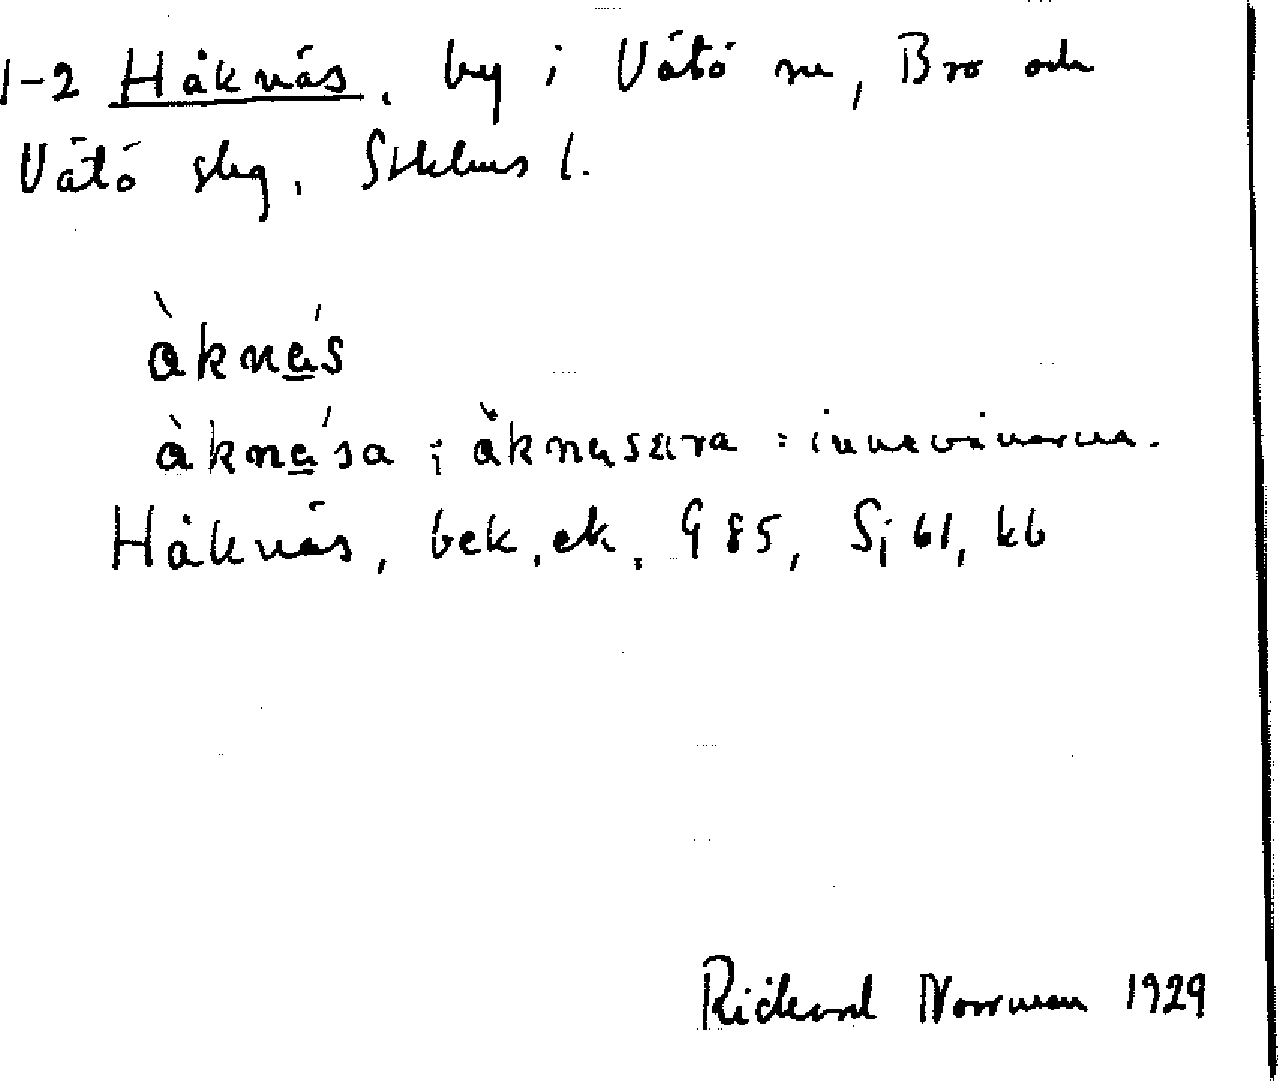 1-2 Håknäs, by i Vätö sn, Bro och
Vätö skg, Sthlms l.
åknás
åknása ; åknasara = innevånarna.
Håknäs, bek, ek, G 85, Sj 61, kb
Rickard Norrman 1929